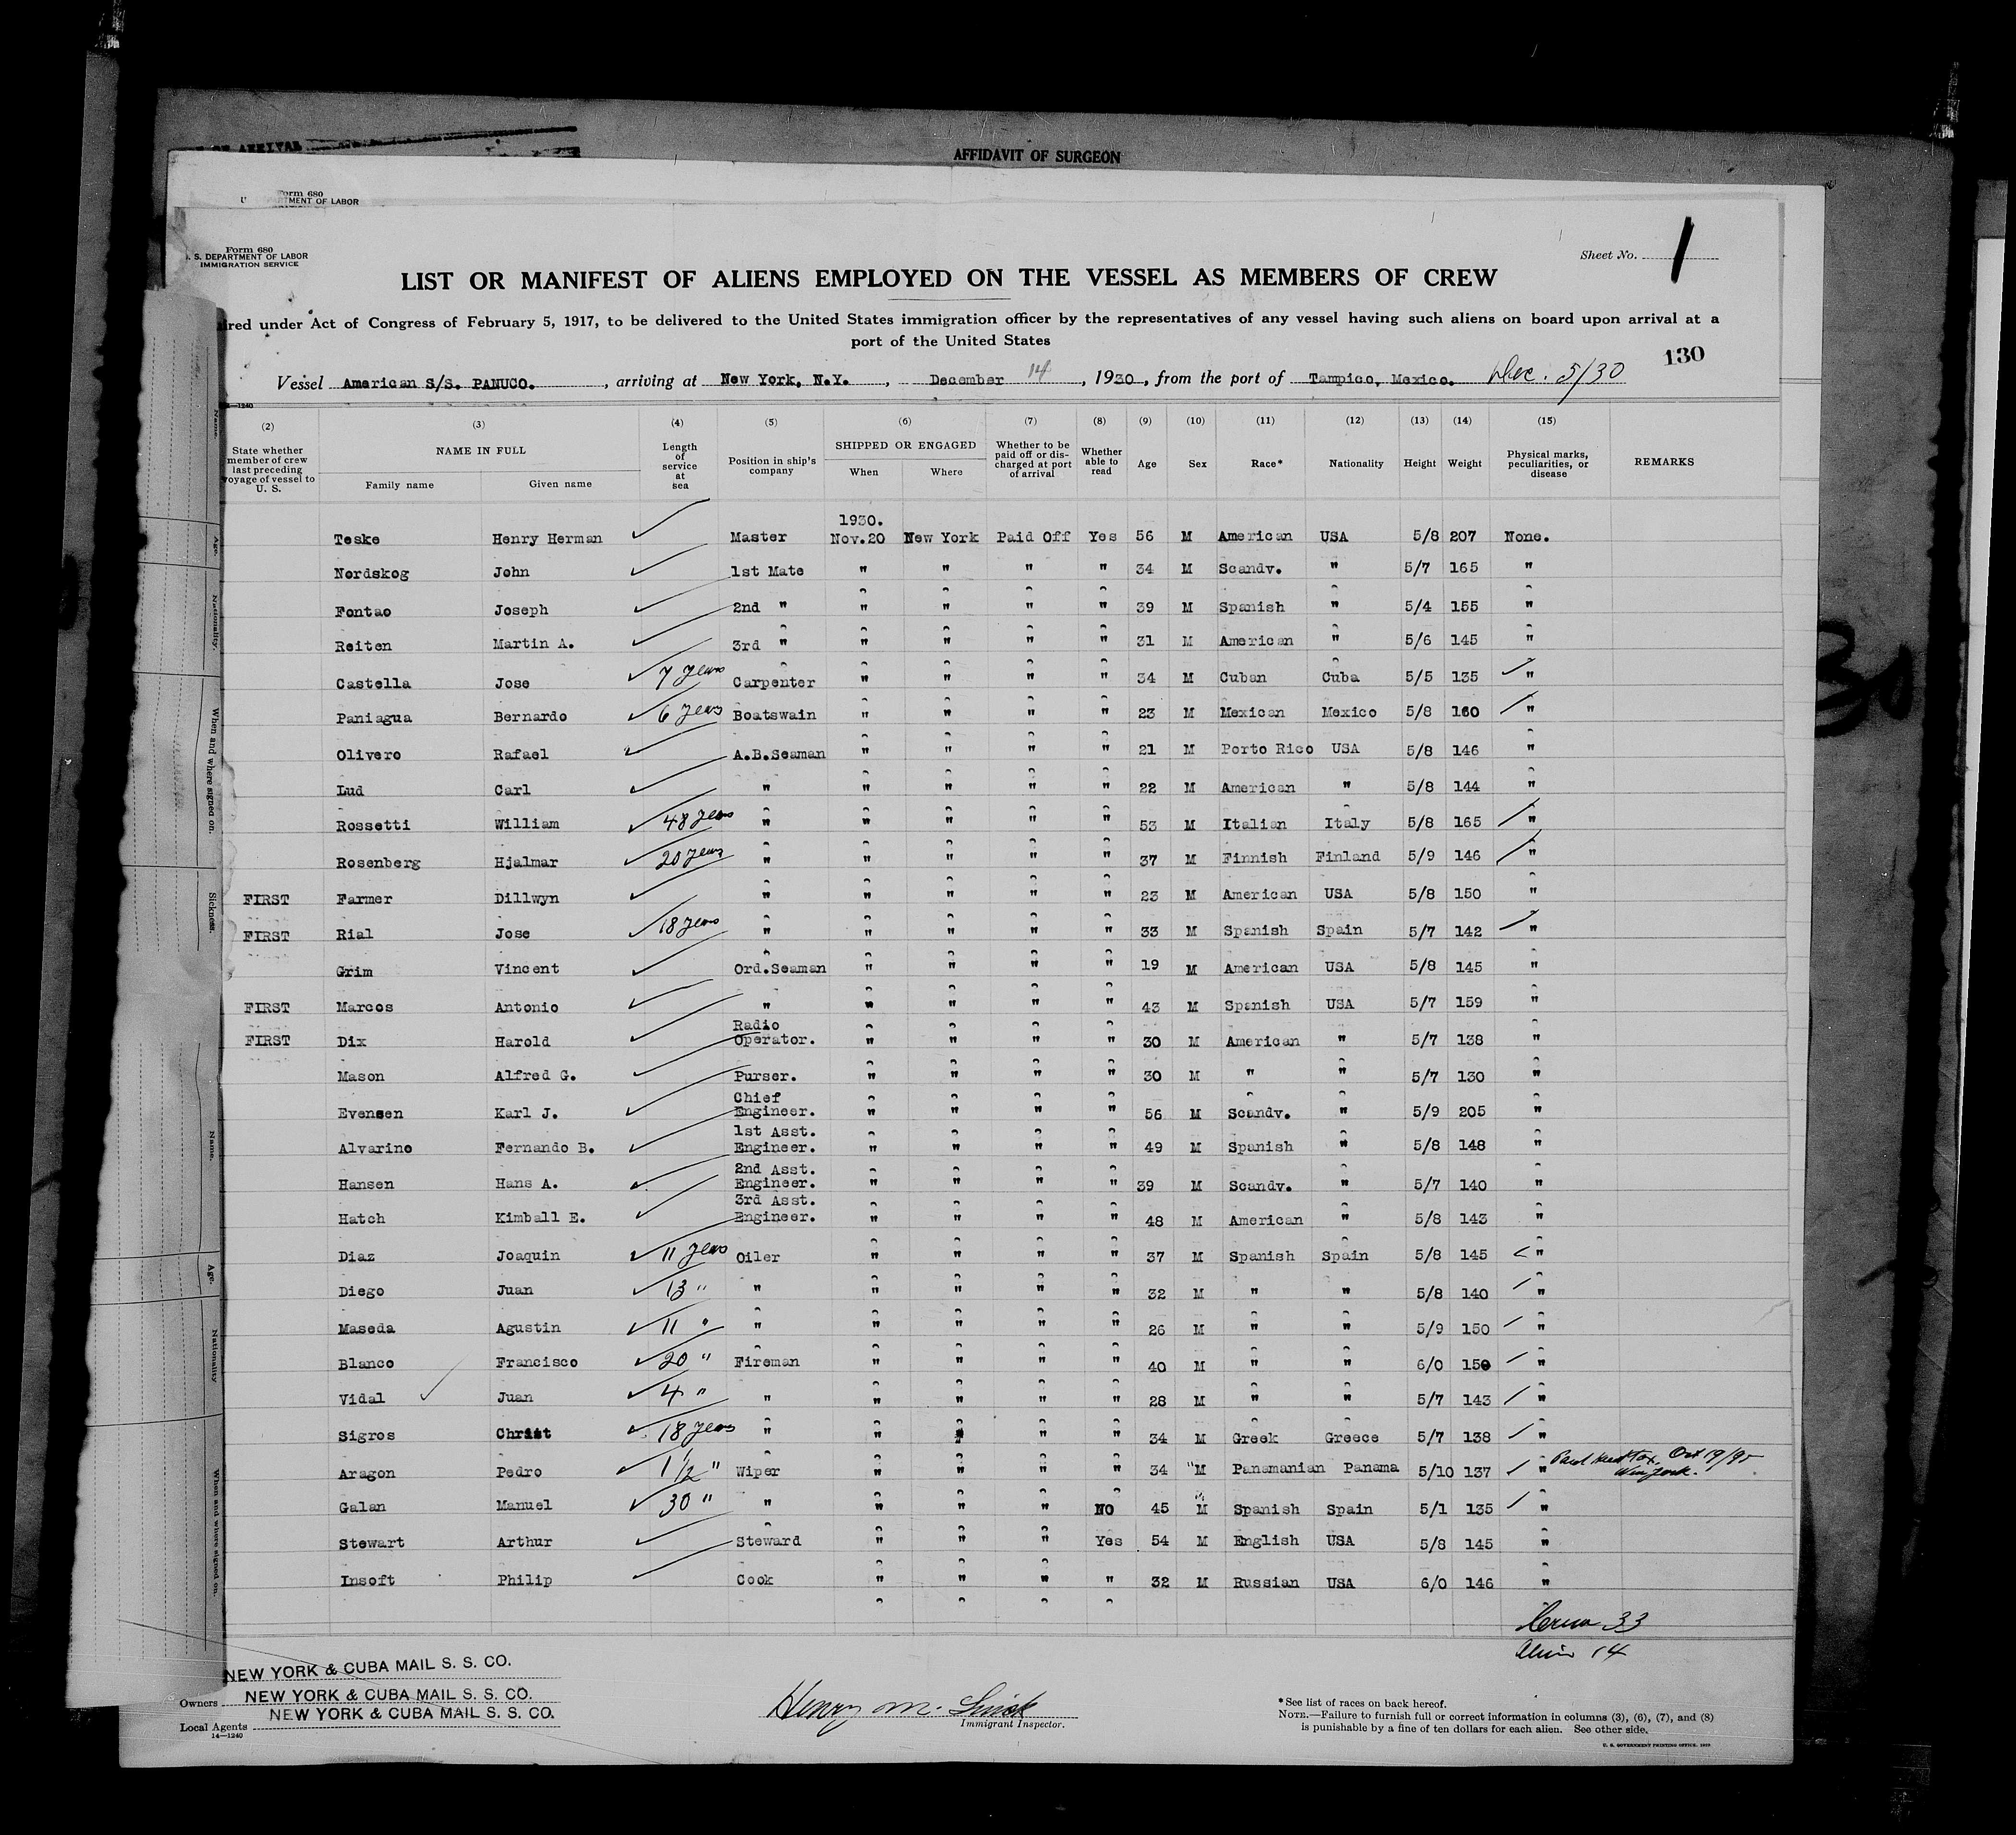 AFFIDAVIT OF SURGEON
Form 680
MENT OF LABOR
Form 680
S. DEPARTMENT OF LABOR
IMMIGRATION SERVICE
Sheet No. 1
LIST OR MANIFEST OF ALIENS EMPLOYED ON THE VESSEL AS MEMBERS OF CREW
ired under Act of Congress of February 5, 1917, to be delivered to the United States immigration officer by the representatives of any vessel having such aliens on board upon arrival at a
port of the United States
130
Vessel American S/S. PANUCO. , arriving at New York, N.Y. , December 14 , 1930 , from the port of Tampico, Mexico. Dec. 5/30
(2) (3) (4) (5) (6) (7) (8) (9) (10) (11) (12) (13) (14) (15)
State whether member of crew last preceding voyage of vessel to U. S. NAME IN FULL Family name Given name Length of service at sea Position in ship's company SHIPPED OR ENGAGED When Where Whether to be paid off or discharged at port of arrival Whether able to read Age Sex Race* Nationality Height Weight Physical marks, peculiarities, or disease REMARKS
1930.
Teske Henry Herman Master Nov.20 New York Paid Off Yes 56 M American USA 5/8 207 None.
Nordskog John 1st Mate " " " " 34 M Scandv. " 5/7 165 "
Fontao Joseph 2nd " " " " " 39 M Spanish " 5/4 155 "
Reiten Martin A. 3rd " " " " " 31 M American " 5/6 145 "
Castella Jose 7 years Carpenter " " " " 34 M Cuban Cuba 5/5 135 "
Paniagua Bernardo 6 years Boatswain " " " " 23 M Mexican Mexico 5/8 160 "
Olivero Rafael A.B.Seaman " " " " 21 M Porto Rico USA 5/8 146 "
Lud Carl " " " " " 22 M American " 5/8 144 "
Rossetti William 48 years " " " " " 53 M Italian Italy 5/8 165 "
Rosenberg Hjalmar 20 years " " " " " 37 M Finnish Finland 5/9 146 "
FIRST Farmer Dillwyn " " " " " 23 M American USA 5/8 150 "
FIRST Rial Jose 18 years " " " " " 33 M Spanish Spain 5/7 142 "
Grim Vincent Ord.Seaman " " " " 19 M American USA 5/8 145 "
FIRST Marcos Antonio " " " " " 43 M Spanish USA 5/7 159 "
FIRST Dix Harold Radio Operator. " " " " 30 M American " 5/7 138 "
Mason Alfred G. Purser. " " " " 30 M " " 5/7 130 "
Evensen Karl J. Chief Engineer. " " " " 56 M Scandv. " 5/9 205 "
Alvarino Fernando B. 1st Asst. Engineer. " " " " 49 M Spanish " 5/8 148 "
Hansen Hans A. 2nd Asst. Engineer. " " " " 39 M Scandv. " 5/7 140 "
Hatch Kimball E. 3rd Asst. Engineer. " " " " 48 M American " 5/8 143 "
Diaz Joaquin 11 years Oiler " " " " 37 M Spanish Spain 5/8 145 "
Diego Juan 13 " " " " " " 32 M " " 5/8 140 "
Maseda Agustin 11 " " " " " " 26 M " " 5/9 150 "
Blanco Francisco 20 " Fireman " " " " 40 M " " 6/0 150 "
Vidal Juan 4 " " " " " " 28 M " " 5/7 143 "
Sigros Christ 18 years " " " " " 34 M Greek Greece 5/7 138 "
Aragon Pedro 1 1/2 " Wiper " " " " 34 M Panamanian Panama 5/10 137 " Paid head tax Oct 19/ New York.
Galan Manuel 30 " " " " " NO 45 M Spanish Spain 5/1 135 "
Stewart Arthur Steward " " " Yes 54 M English USA 5/8 145 "
Insoft Philip Cook " " " " 32 M Russian USA 6/0 146 "
33
14
NEW YORK & CUBA MAIL S. S. CO.
Owners NEW YORK & CUBA MAIL S. S. CO.
NEW YORK & CUBA MAIL S. S. CO.
Local Agents
14—1240
Henry M.
Immigrant Inspector.
*See list of races on back hereof.
NOTE.—Failure to furnish full or correct information in columns (3), (6), (7), and (8)
is punishable by a fine of ten dollars for each alien. See other side.
U. S. GOVERNMENT PRINTING OFFICE